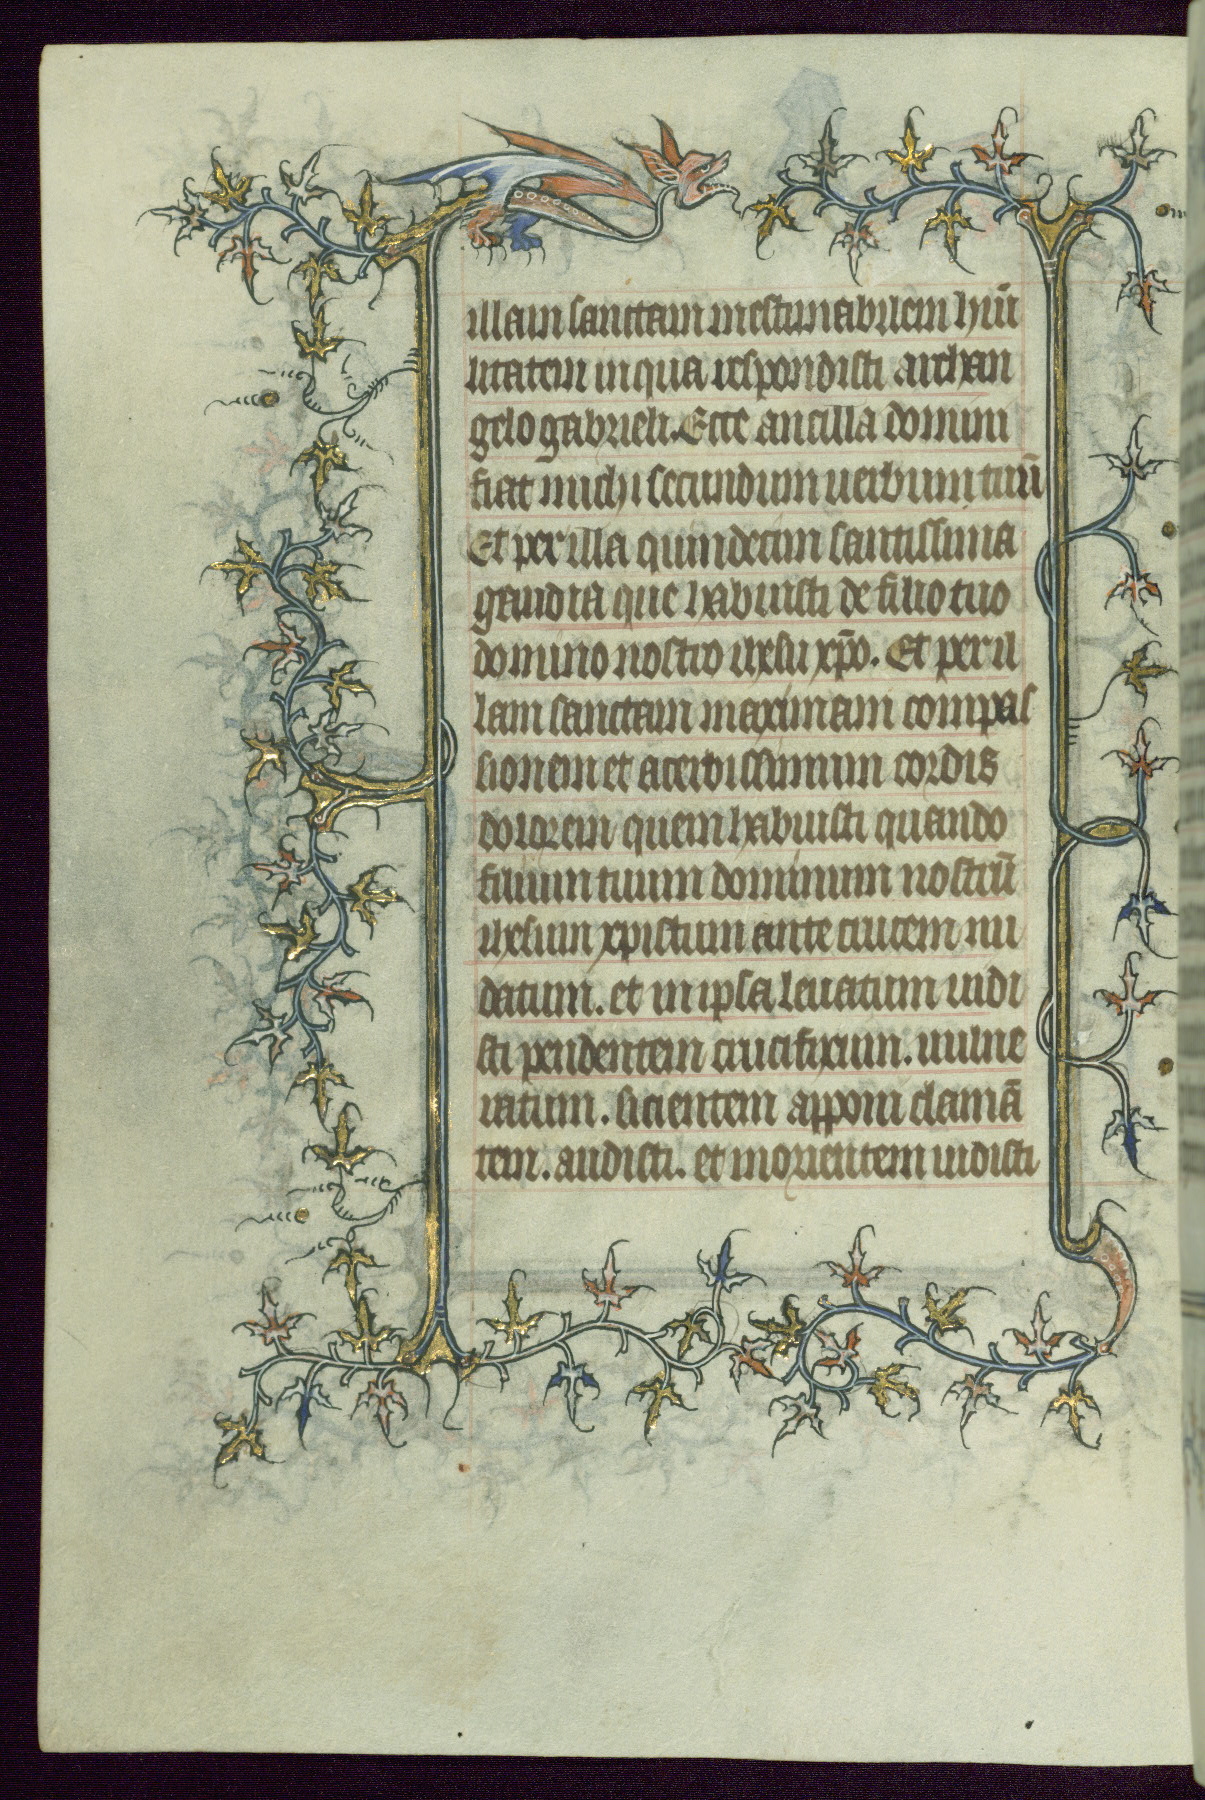 illam sanctam inestimabilem hūi
litatem in qua respondisti archan
gelo gabrieli. Ecce ancilla domini
fiat michi secundum uerbum tuū
Et per illa quindecim sanctissima
gaudia que habuisti de filio tuo
domino nostro ihesu xp̄o. Et per il
lam sanctam maximam compas
sionem et acerbissimum cordis
dolorem quem habuisti quando
filium tuum dominum nostrū
ihesum xpistum ante crucem nu
datum. et in ipsa leuatum uidi
sti pendentem crucifixum. uulne
ratum. sicientem apponi clamā
tem. audisti. et morientem uidisti